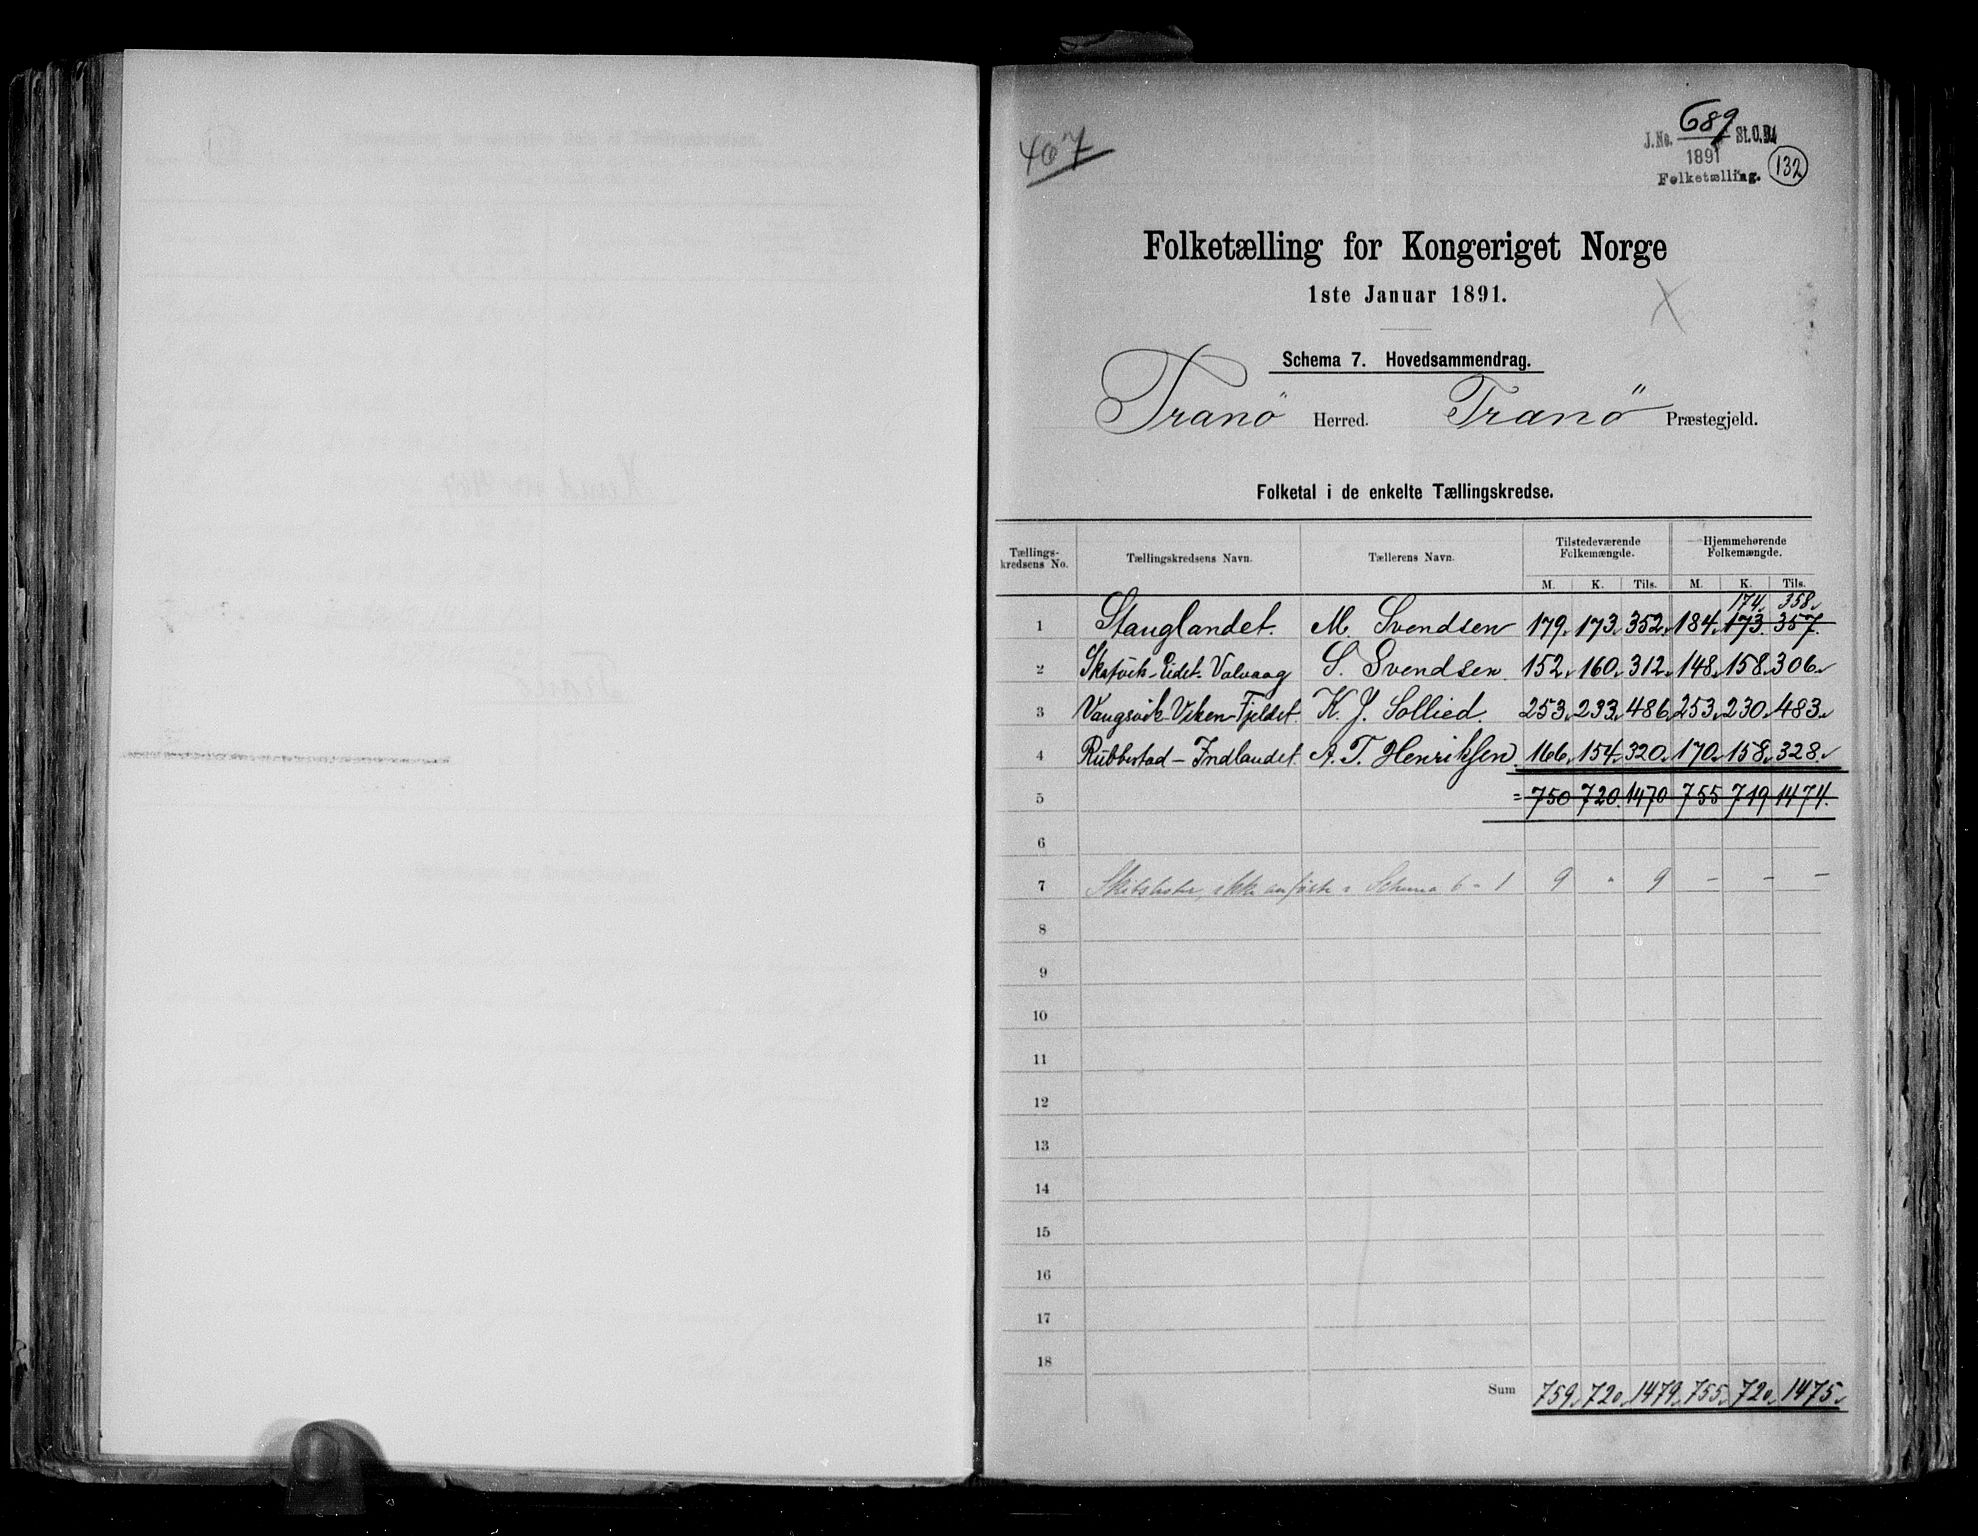 407
J.No. 689 St.C.B.
1891
Folketælling. 132
Folketælling for Kongeriget Norge
1ste Januar 1891.
Schema 7. Hovedsammendrag.
Tranö Herred. Tranö Præstegjeld.
Folketal i de enkelte Tællingskredse.
Tællings-kredsens No. Tællingskredsens Navn. Tællerens Navn. Tilstedeværende Folkemængde. Hjemmehørende Folkemængde.
M. K. Tils. M. K. Tils.
174 358
1 Stanglandet. M. Svendsen 179 173 352 184 173 357
2 Skatvik-Eidet-Valvaag S. Svendsen 152 160 312 148 158 306
3 Vangsvik-Viken-Fjeldet K. J. Sollied. 253 233 486 253 230 483
4 Rubbestad - Indlandet A. T. Henriksen 166 154 320 170 158 328
5 = 750 720 1470 755 719 1474.
6
7 Skibslister, ikke anførte i Schema 6 - 1 9 " 9 - - -
8
9
10
11
12
13
14
15
16
17
18
Sum 759 720 1479 755 720 1475